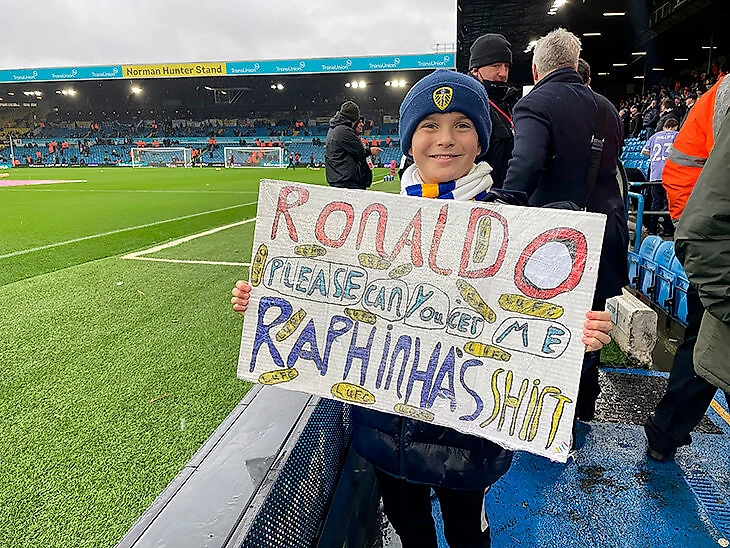 TransUnion TransUnion TransUnion Norman Hunter Stand TransUnion TransUnion TransUnion
23
RONALDO
PLEASE CAN YOU GET ME
RAPHINHA'S SHIRT
LUFC
LUFC
LUFC
LUFC